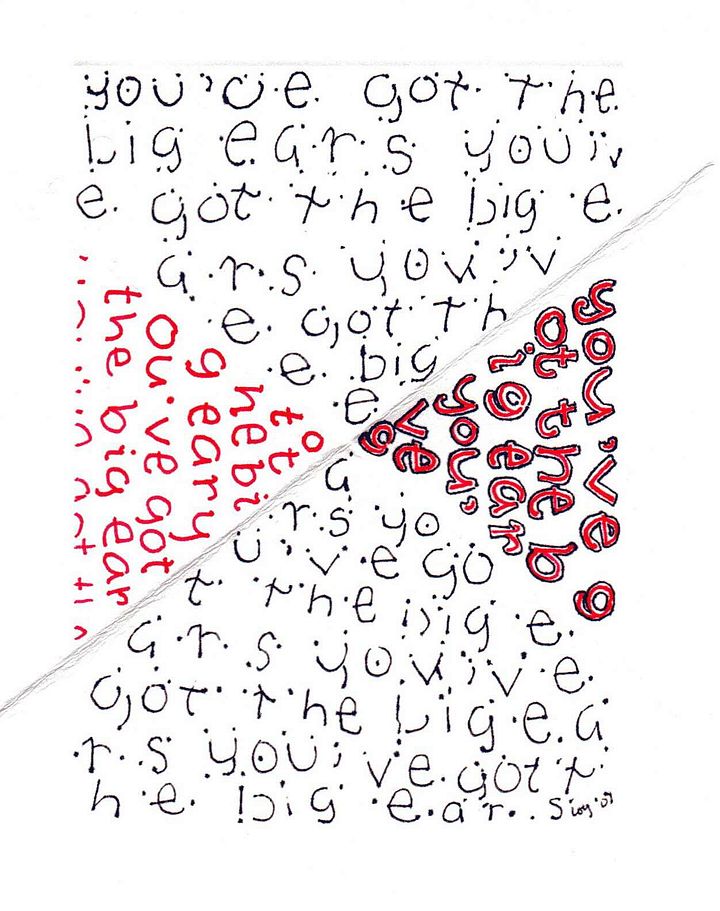 you've got the
big ears you'v
e got the big e
ars you'v
e got th
e big
e
a
rs yo
u've go
t the big e
ars you've
got the big ea
rs you've got t
he big ears
o
t t
hebi
g eary
ou've got
the big ear
you've g
ot the b
ig ear
you'
ve
g